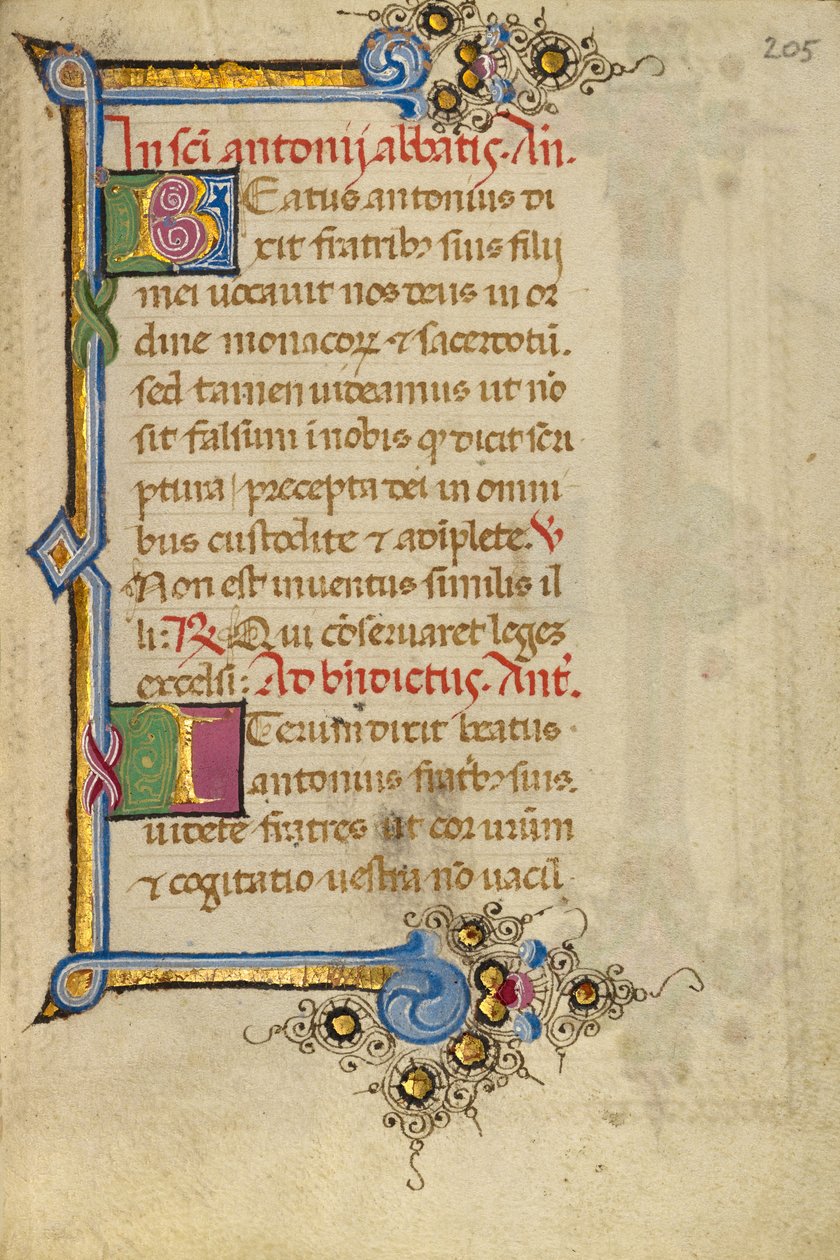 205
In sci antonij abbatis. An.
BEatus antonius di
xit fratribꝫ suis filij
mei uocauit nos deus in or
dine monacoꝝ ⁊ sacerdotū.
sed tamen uideamus ut nō
sit falsum ī nobis qͥ dicit scri
ptura / precepta dei in omni
bus custodite ⁊ adīplete. V
Non est inuentus similis il
li: R Qui cōseruaret leges
excelsi: Ad bn̄dictus. Ant.
ITerum dixit beatus
antonius fratribꝫ suis.
uidete fratres ut cor urūm
⁊ cogitatio uestra nō uacil